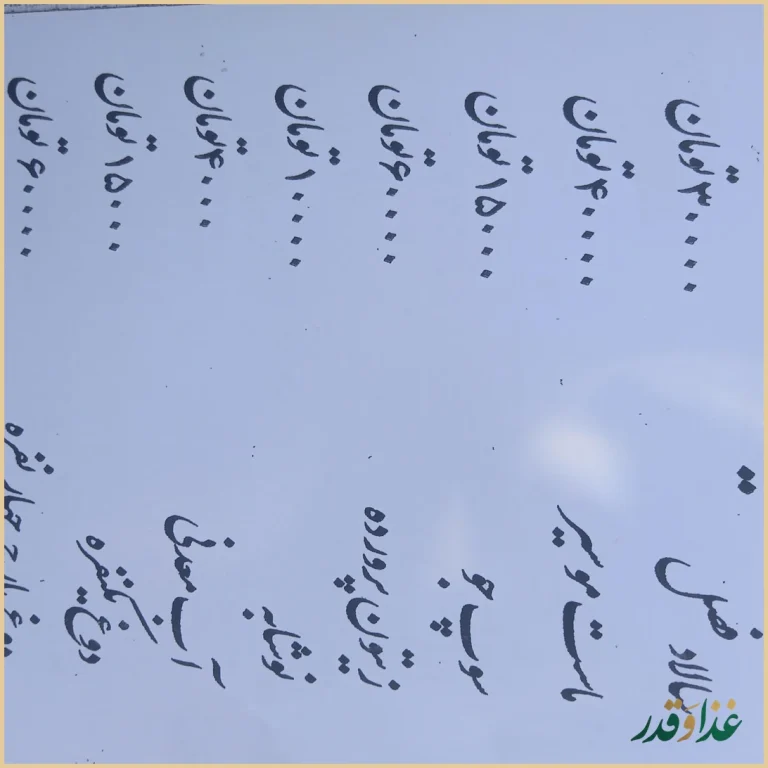 سالاد فصل ۳۰۰۰۰ تومان
ماست موسیر ۴۰۰۰۰ تومان
سوپ جو ۱۵۰۰۰ تومان
زیتون پرورده ۶۰۰۰۰ تومان
نوشابه ۱۰۰۰۰ تومان
آب معدنی ۴۰۰۰ تومان
دوغ تکنفره ۱۵۰۰۰ تومان
چهار نفره ۶۰۰۰۰ تومان
غذا و قدر